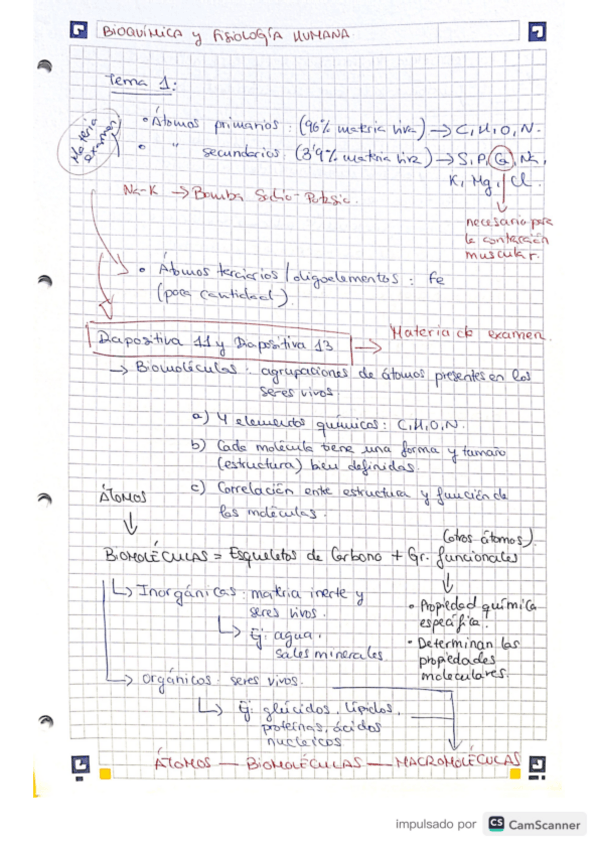 BIOQUÍMICA y FISIOLOGÍA HUMANA
Tema 1:
Materia examen
• Átomos primarios: (96% materia viva) → C, H, O, N.
• " secundarios: (3'9% materia viva) → S, P, Ca, Na,
K, Mg, Cl.
Na-K → Bomba Sodio-Potasio.
necesario para
la contracción
muscular.
• Átomos terciarios / oligoelementos: Fe
(poca cantidad).
Diapositiva 11 y Diapositiva 13 → Materia de examen.
→ Biomoléculas: agrupaciones de átomos presentes en los
seres vivos.
a) 4 elementos químicos: C, H, O, N.
b) Cada molécula tiene una forma y tamaño
(estructura) bien definidas.
c) Correlación ente estructura y función de
las moléculas.
ÁTOMOS
(otros átomos).
BIOMOLÉCULAS = Esqueletos de Carbono + Gr. funcionales
↳ Inorgánicas: matria inerte y
seres vivos.
↳ Ej: agua,
sales minerales.
• Propiedad química
específica.
• Determinan las
propiedades
moleculares.
↳ Orgánicos: seres vivos.
↳ Ej: glúcidos, lípidos,
proteínas, ácidos
nucleicos
ÁTOMOS — BIOMOLÉCULAS — MACROMOLÉCULAS
impulsado por CS CamScanner